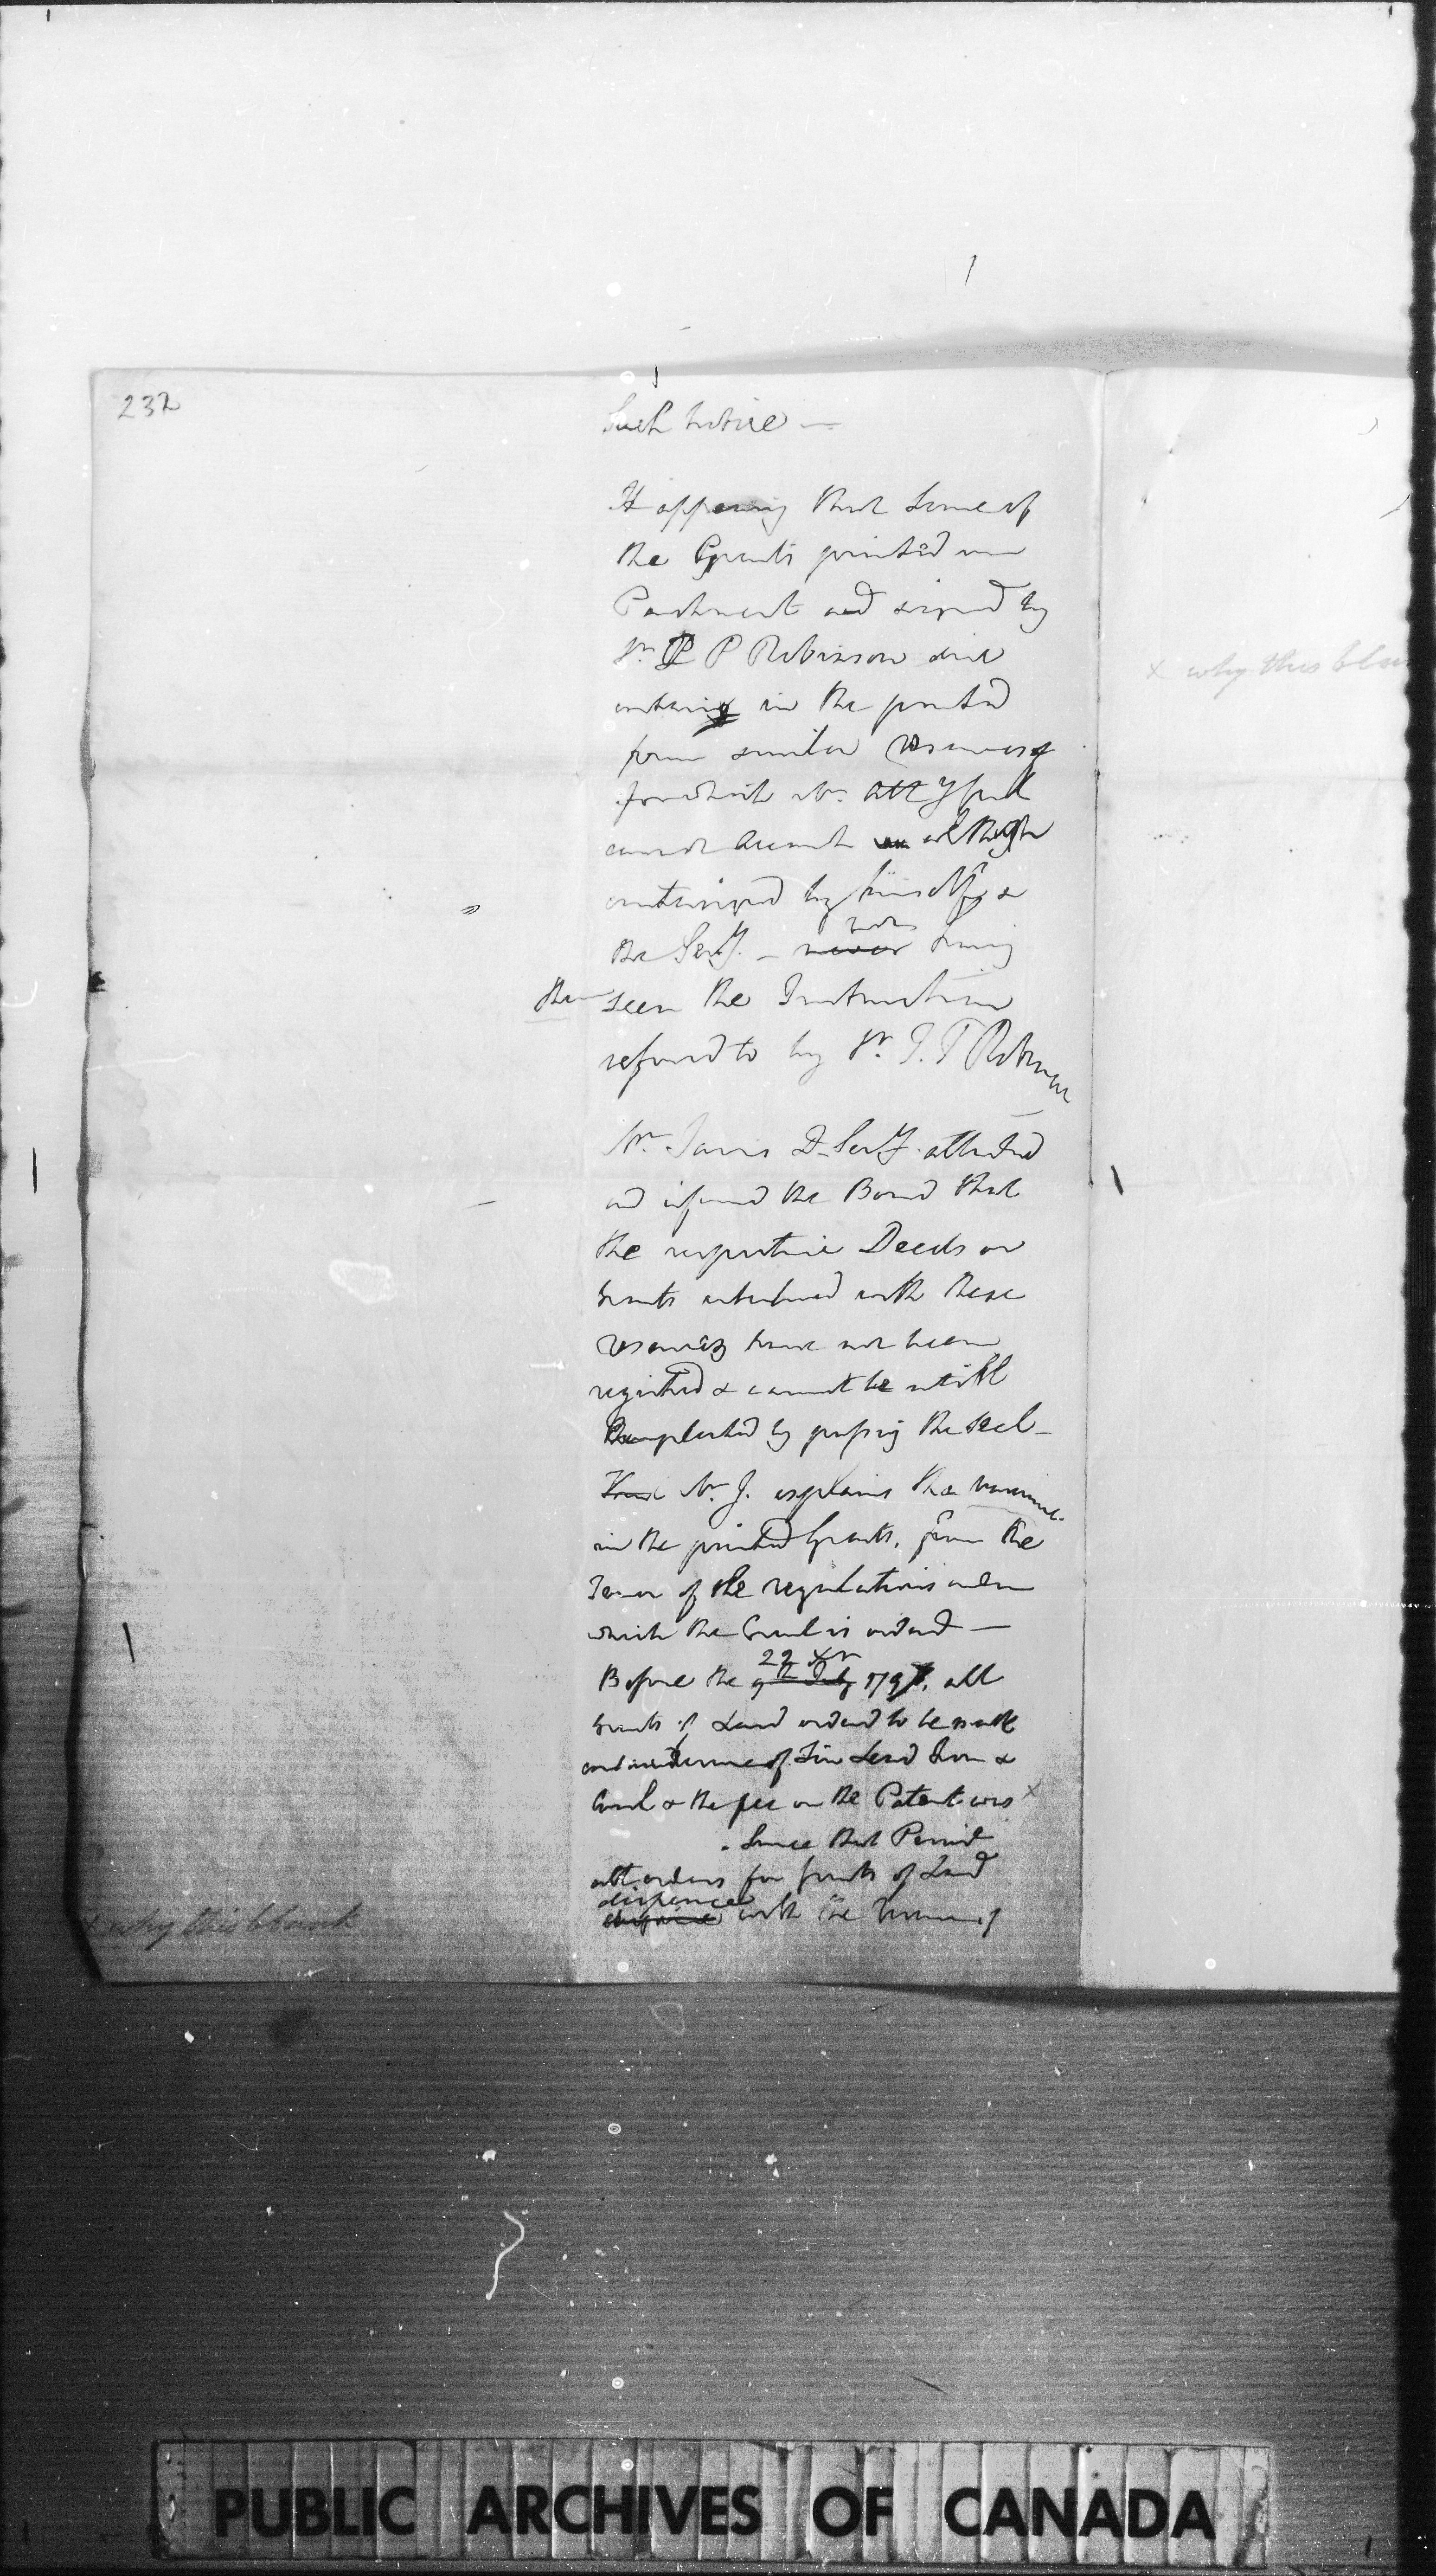 232
Such notice —
It appearing that some of
the Grants printed on
Parchment and signed by
Mr P Robinson did
contain in the printed
form similar reserves
for which Mr
cannot account although
countersigned by himself &
the Secy. — never having
not
then
seen the Instructions
referred to by Mr Robinson
Mr Jarvis D. Secy. attended
and informed the Board that
the respective Deeds or
Grants returned with these
reserves have not been
registered & cannot be until
completed by passing the Seal —
Mr J. explains the
in the printed Grants, from the
Tenor of the regulations under
which the Grant is ordered —
22 Xr
Before the 9th July 1797, all
Grants of Land ordered to be made
of Tin Lead Iron &
Coal & the fee on the Patent was x
. Since that Period
all orders for Grants of Land
dispence
with the
x why this blank
x why this blan
PUBLIC ARCHIVES OF CANADA